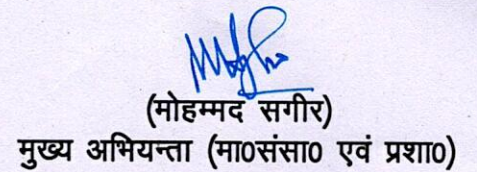 (मोहम्मद सगीर)
मुख्य अभियन्ता (मा0संसा0 एवं प्रशा0)